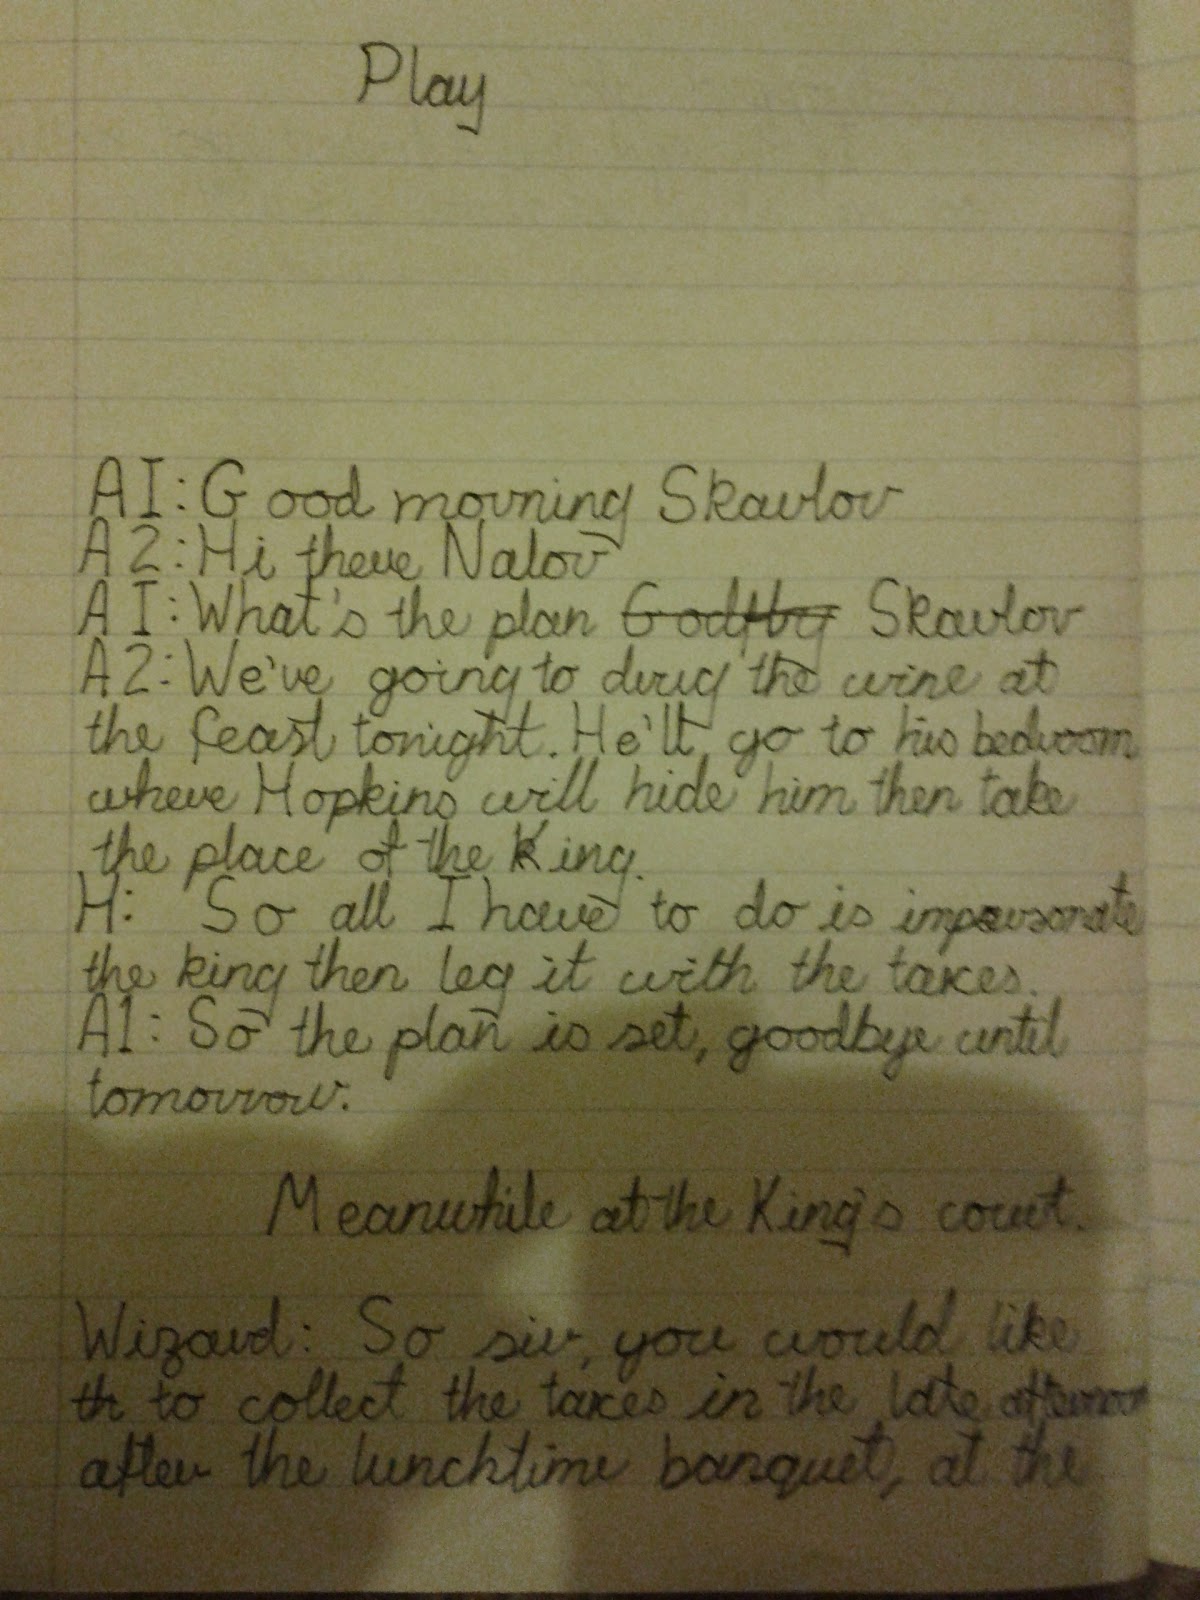 Play
A1: Good morning Skarlov
A2: Hi there Nalov
A1: What's the plan Godfby Skarlov
A2: We're going to drug the wine at
the feast tonight. He'll go to his bedroom
where Hopkins will hide him then take
the place of the King.
H: So all I have to do is impersonate
the king then leg it with the taxes.
A1: So the plan is set, goodbye until
tomorrow.
Meanwhile at the King's court.
Wizard: So sir, you would like
th to collect the taxes in the late afternoon
after the lunchtime banquet, at the